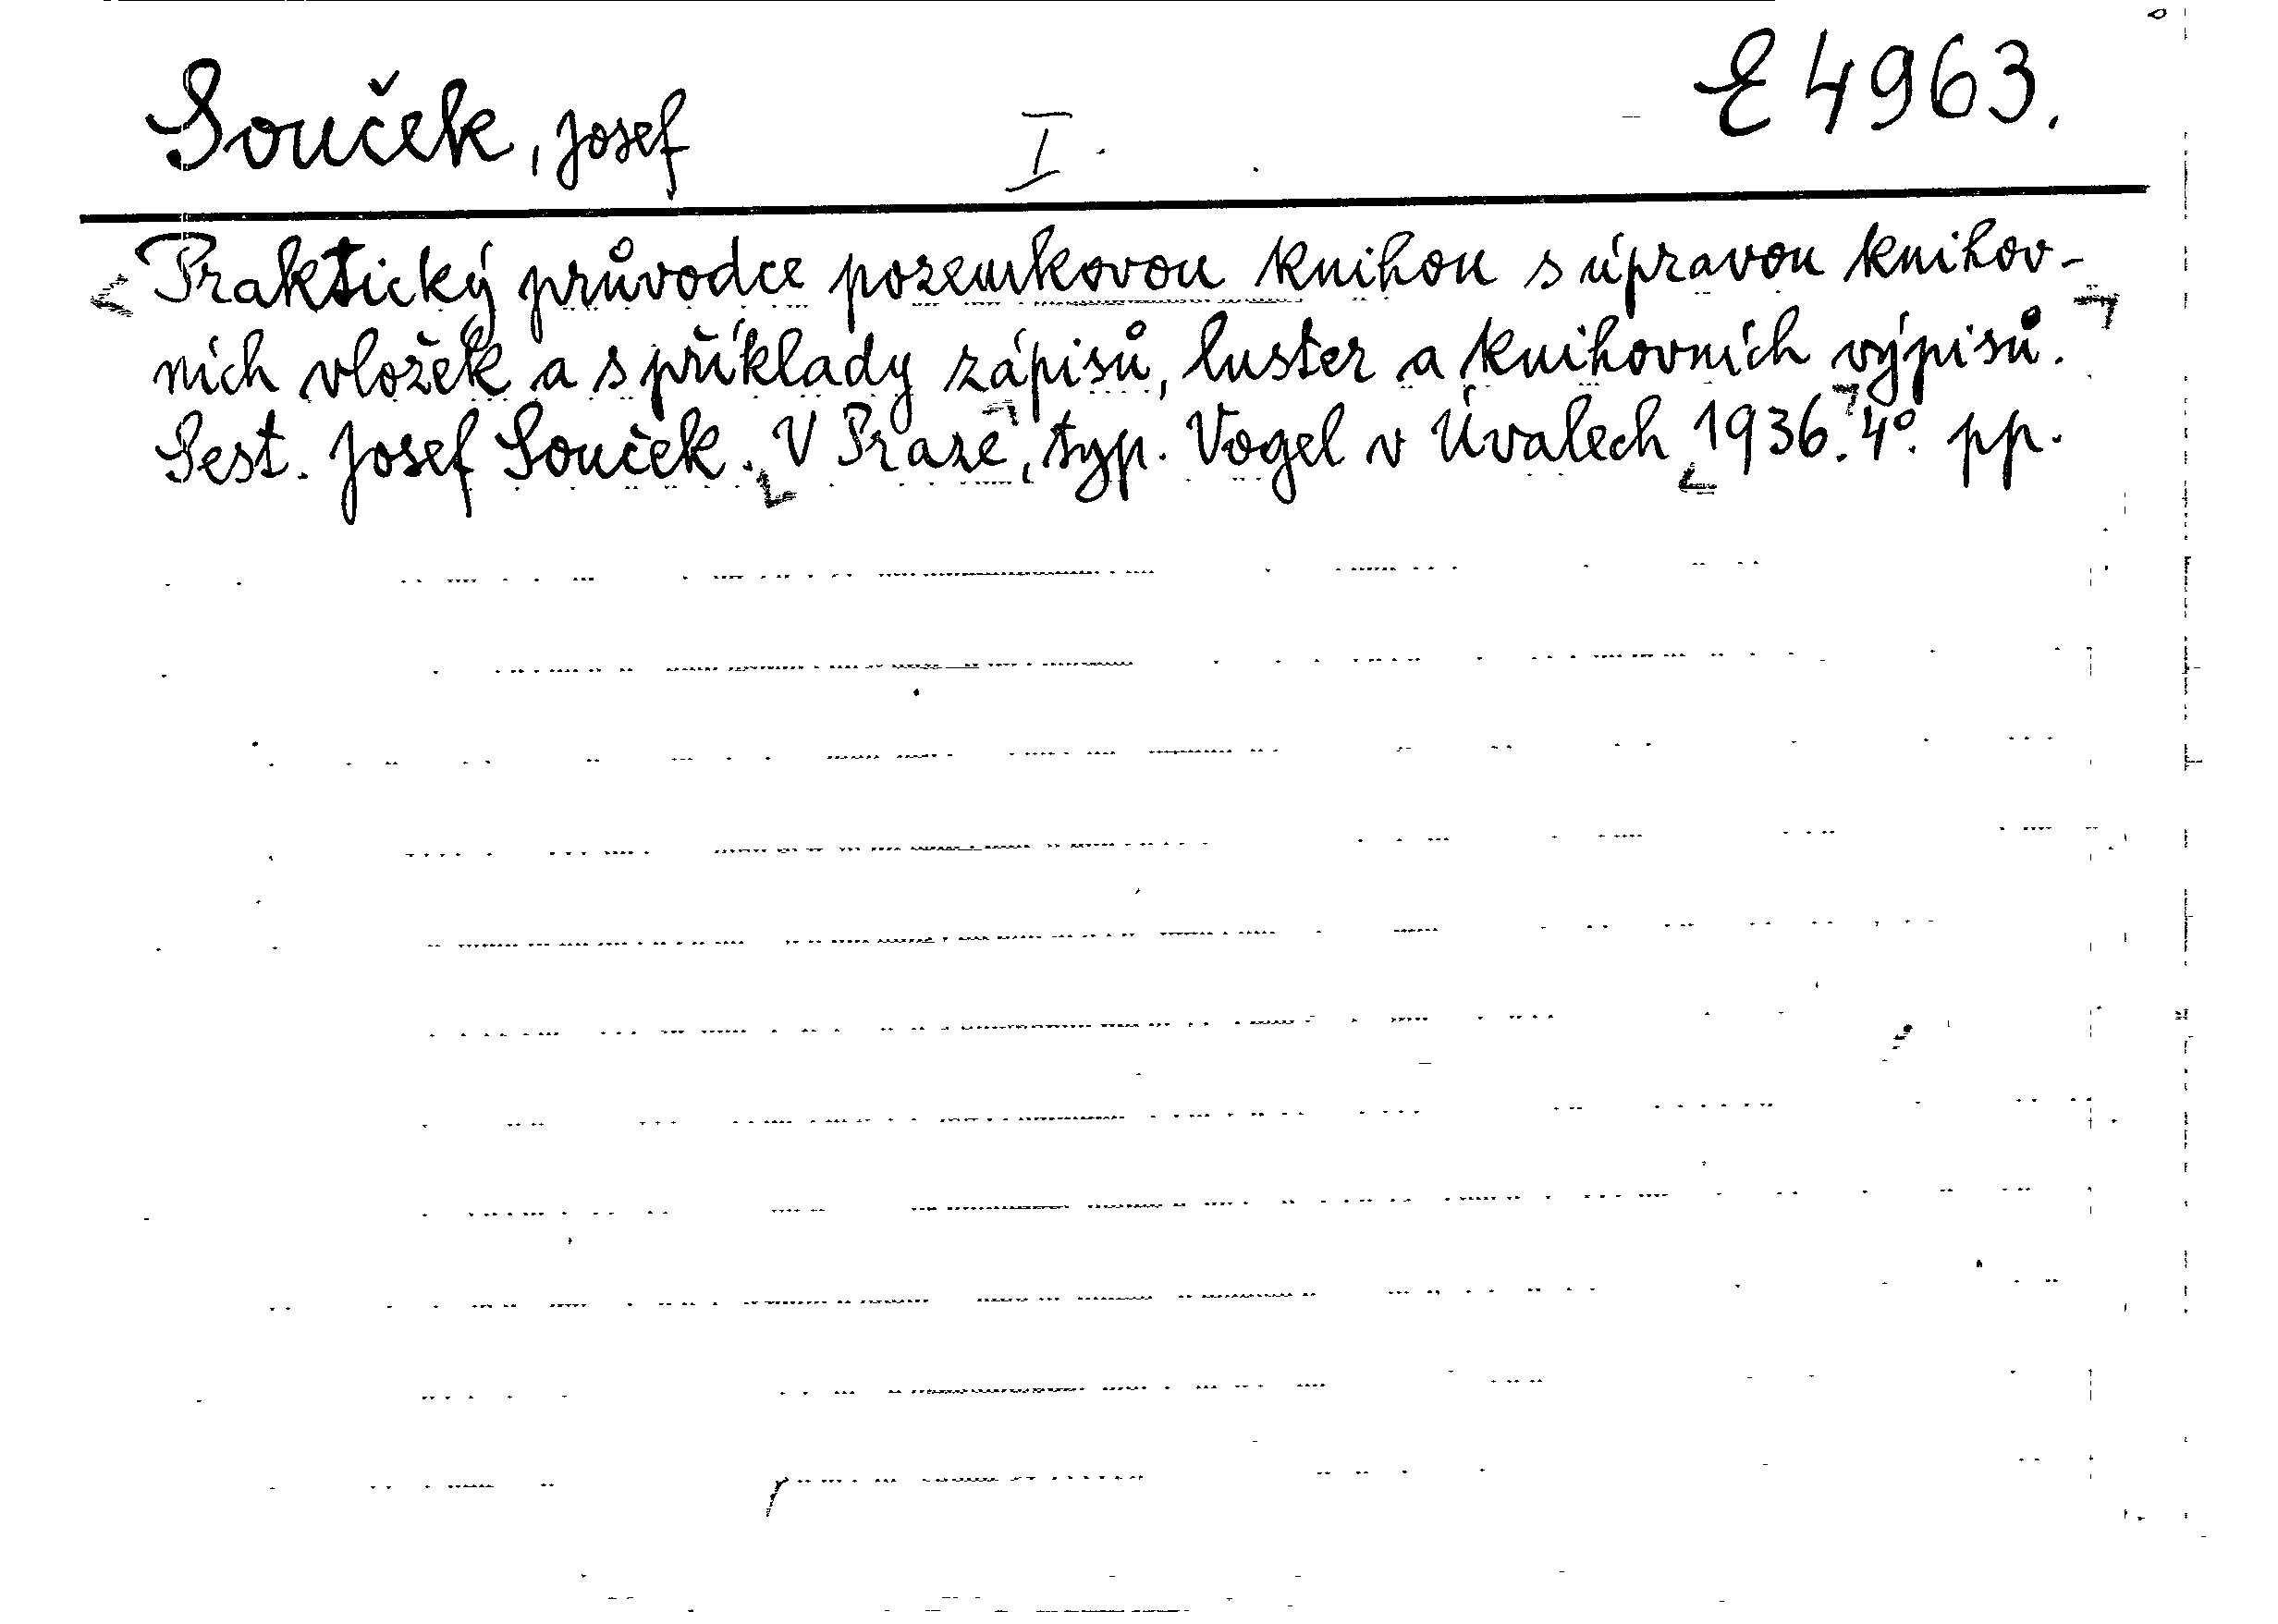 Souček, Josef I. E 4963.
Praktický průvodce pozemkovou knihou s úpravou knihov-
ních vložek a s příklady zápisů, luster a knihovních výpisů.
Sest. Josef Souček. V Praze, typ. Vogel v Úvalech 1936. 4°. pp.